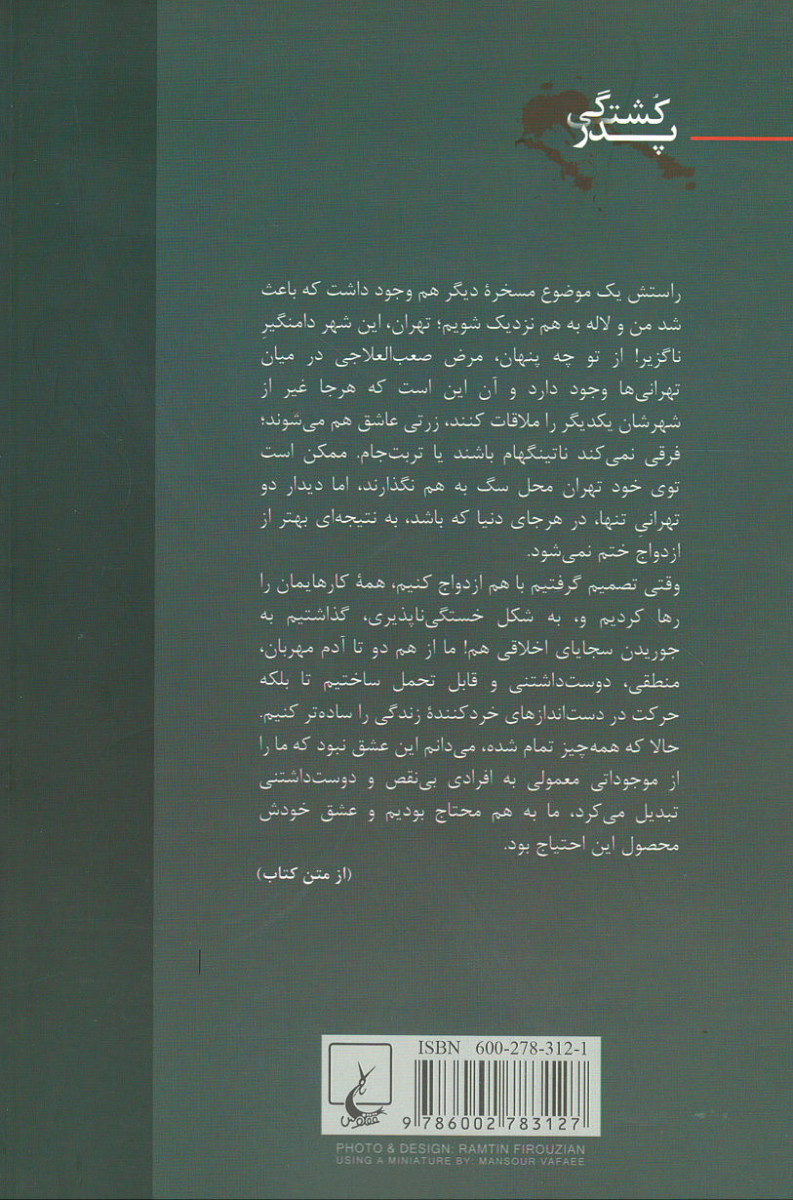 پدرکُشتگی
راستش یک موضوع مسخرهٔ دیگر هم وجود داشت که باعث
شد من و لاله به هم نزدیک شویم؛ تهران، این شهر دامنگیرِ
ناگزیر! از تو چه پنهان، مرض صعب‌العلاجی در میان
تهرانی‌ها وجود دارد و آن این است که هرجا غیر از
شهرشان یکدیگر را ملاقات کنند، زرتی عاشق هم می‌شوند؛
فرقی نمی‌کند ناتینگهام باشند یا تربت‌جام. ممکن است
توی خود تهران محل سگ به هم نگذارند، اما دیدار دو
تهرانیِ تنها، در هرجای دنیا که باشد، به نتیجه‌ای بهتر از
ازدواج ختم نمی‌شود.
وقتی تصمیم گرفتیم با هم ازدواج کنیم، همهٔ کارهایمان را
رها کردیم و، به شکل خستگی‌ناپذیری، گذاشتیم به
جوریدن سجایای اخلاقی هم! ما از هم دو تا آدم مهربان،
منطقی، دوست‌داشتنی و قابل تحمل ساختیم تا بلکه
حرکت در دست‌اندازهای خردکنندهٔ زندگی را ساده‌تر کنیم.
حالا که همه‌چیز تمام شده، می‌دانم این عشق نبود که ما را
از موجوداتی معمولی به افرادی بی‌نقص و دوست‌داشتنی
تبدیل می‌کرد، ما به هم محتاج بودیم و عشق خودش
محصول این احتیاج بود.
(از متن کتاب)
ISBN 600-278-312-1
ققنوس
9 786002 783127
PHOTO & DESIGN: RAMTIN FIROUZIAN
USING A MINIATURE BY: MANSOUR VAFAEE